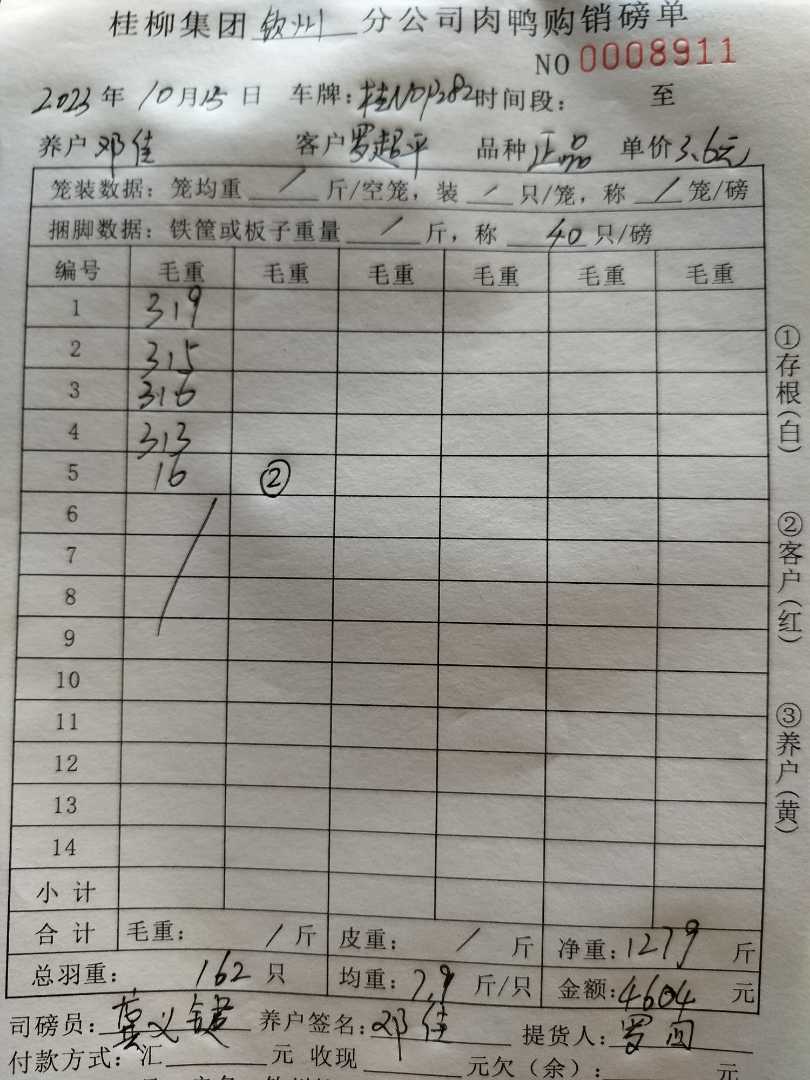 桂柳集团 钦州 分公司肉鸭购销磅单
NO 0008911
2023 年 10 月 15 日 车牌: 桂N0P282 时间段: 至
养户 邓佳 客户 罗超平 品种 正品 单价 3.6元
笼装数据: 笼均重 / 斤/空笼, 装 / 只/笼, 称 / 笼/磅
捆脚数据: 铁筐或板子重量 / 斤, 称 40 只/磅
编号 毛重 毛重 毛重 毛重 毛重 毛重
1 319
2 315
3 316
4 313
5 16 ②
6
7
8
9
10
11
12
13
14
小计
合计 毛重: / 斤 皮重: / 斤 净重: 1279 斤
总羽重: 162 只 均重: 7.9 斤/只 金额: 4604 元
司磅员: 养户签名: 邓佳 提货人: 罗
付款方式: 汇 元 收现 元欠(余): 元
①存根(白)
②客户(红)
③养户(黄)